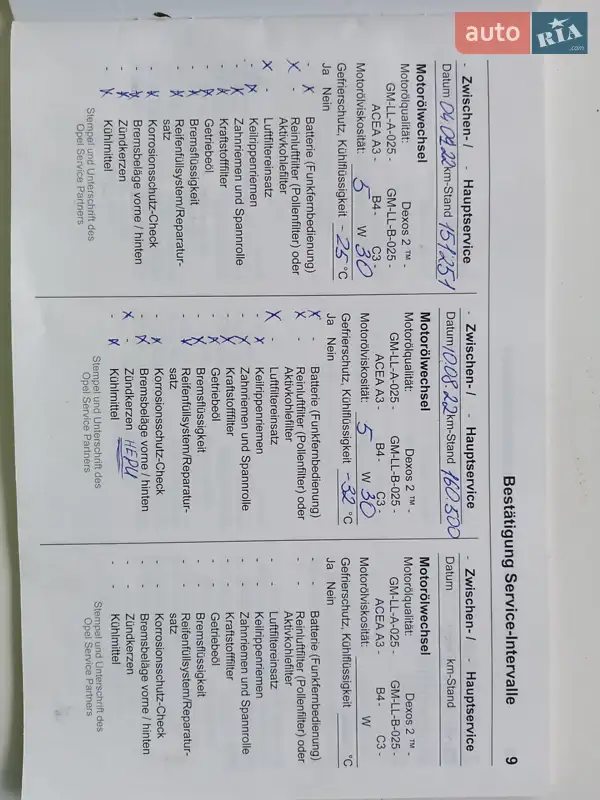 auto RIA .com
Bestätigung Service-Intervalle 9
- Zwischen- / - Hauptservice
Datum 04 02 22 km-Stand 151251
Motorölwechsel
Motorölqualität: Dexos 2 ™ -
GM-LL-A-025 - GM-LL-B-025 -
ACEA A3 - B4 - C3 -
Motorölviskosität: 5 W 30
Gefrierschutz, Kühlflüssigkeit -25 °C
Ja Nein
- X Batterie (Funkfernbedienung)
X - Reinluftfilter (Pollenfilter) oder
Aktivkohlefilter
X - Luftfiltereinsatz
- X Keilrippenriemen
- X Zahnriemen und Spannrolle
- X Kraftstofffilter
- X Getriebeöl
- X Bremsflüssigkeit
- X Reifenfüllsystem/Reparatur-
satz
- X Korrosionsschutz-Check
- X Bremsbeläge vorne / hinten
- X Zündkerzen
- X Kühlmittel
Stempel und Unterschrift des
Opel Service Partners
- Zwischen- / - Hauptservice
Datum 10.08.22 km-Stand 160500
Motorölwechsel
Motorölqualität: Dexos 2 ™ -
GM-LL-A-025 - GM-LL-B-025 -
ACEA A3 - B4 - C3 -
Motorölviskosität: 5 W 30
Gefrierschutz, Kühlflüssigkeit -32 °C
Ja Nein
X - Batterie (Funkfernbedienung)
X - Reinluftfilter (Pollenfilter) oder
Aktivkohlefilter
X - Luftfiltereinsatz
- X Keilrippenriemen
- X Zahnriemen und Spannrolle
- X Kraftstofffilter
- X Getriebeöl
- X Bremsflüssigkeit
- X Reifenfüllsystem/Reparatur-
satz
- X Korrosionsschutz-Check
- X Bremsbeläge vorne / hinten
X - Zündkerzen HEPU
- X Kühlmittel
Stempel und Unterschrift des
Opel Service Partners
- Zwischen- / - Hauptservice
Datum km-Stand
Motorölwechsel
Motorölqualität: Dexos 2 ™ -
GM-LL-A-025 - GM-LL-B-025 -
ACEA A3 - B4 - C3 -
Motorölviskosität: W
Gefrierschutz, Kühlflüssigkeit °C
Ja Nein
- - Batterie (Funkfernbedienung)
- - Reinluftfilter (Pollenfilter) oder
Aktivkohlefilter
- - Luftfiltereinsatz
- - Keilrippenriemen
- - Zahnriemen und Spannrolle
- - Kraftstofffilter
- - Getriebeöl
- - Bremsflüssigkeit
- - Reifenfüllsystem/Reparatur-
satz
- - Korrosionsschutz-Check
- - Bremsbeläge vorne / hinten
- - Zündkerzen
- - Kühlmittel
Stempel und Unterschrift des
Opel Service Partners